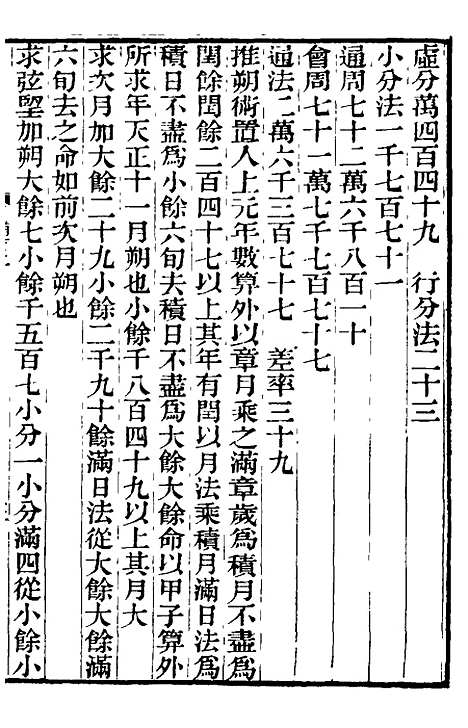 虛分萬四百四十九　行分法二十三
小分法一千七百七十一
通周七十二萬六千八百一十
會周七十一萬七千七百七十七
通法二萬六千三百七十七　差率三十九
推朔術置入上元年數算外以章月乘之滿章歲爲積月不盡爲
閏餘閏餘二百四十七以上其年有閏以月法乘積月滿日法爲
積日不盡爲小餘六旬去積日不盡爲大餘大餘命以甲子算外
所求年天正十一月朔也小餘千八百四十九以上其月大
求次月加大餘二十九小餘二千九十餘滿日法從大餘大餘滿
六旬去之命如前次月朔也
求弦望加朔大餘七小餘千五百七小分一小分滿四從小餘小